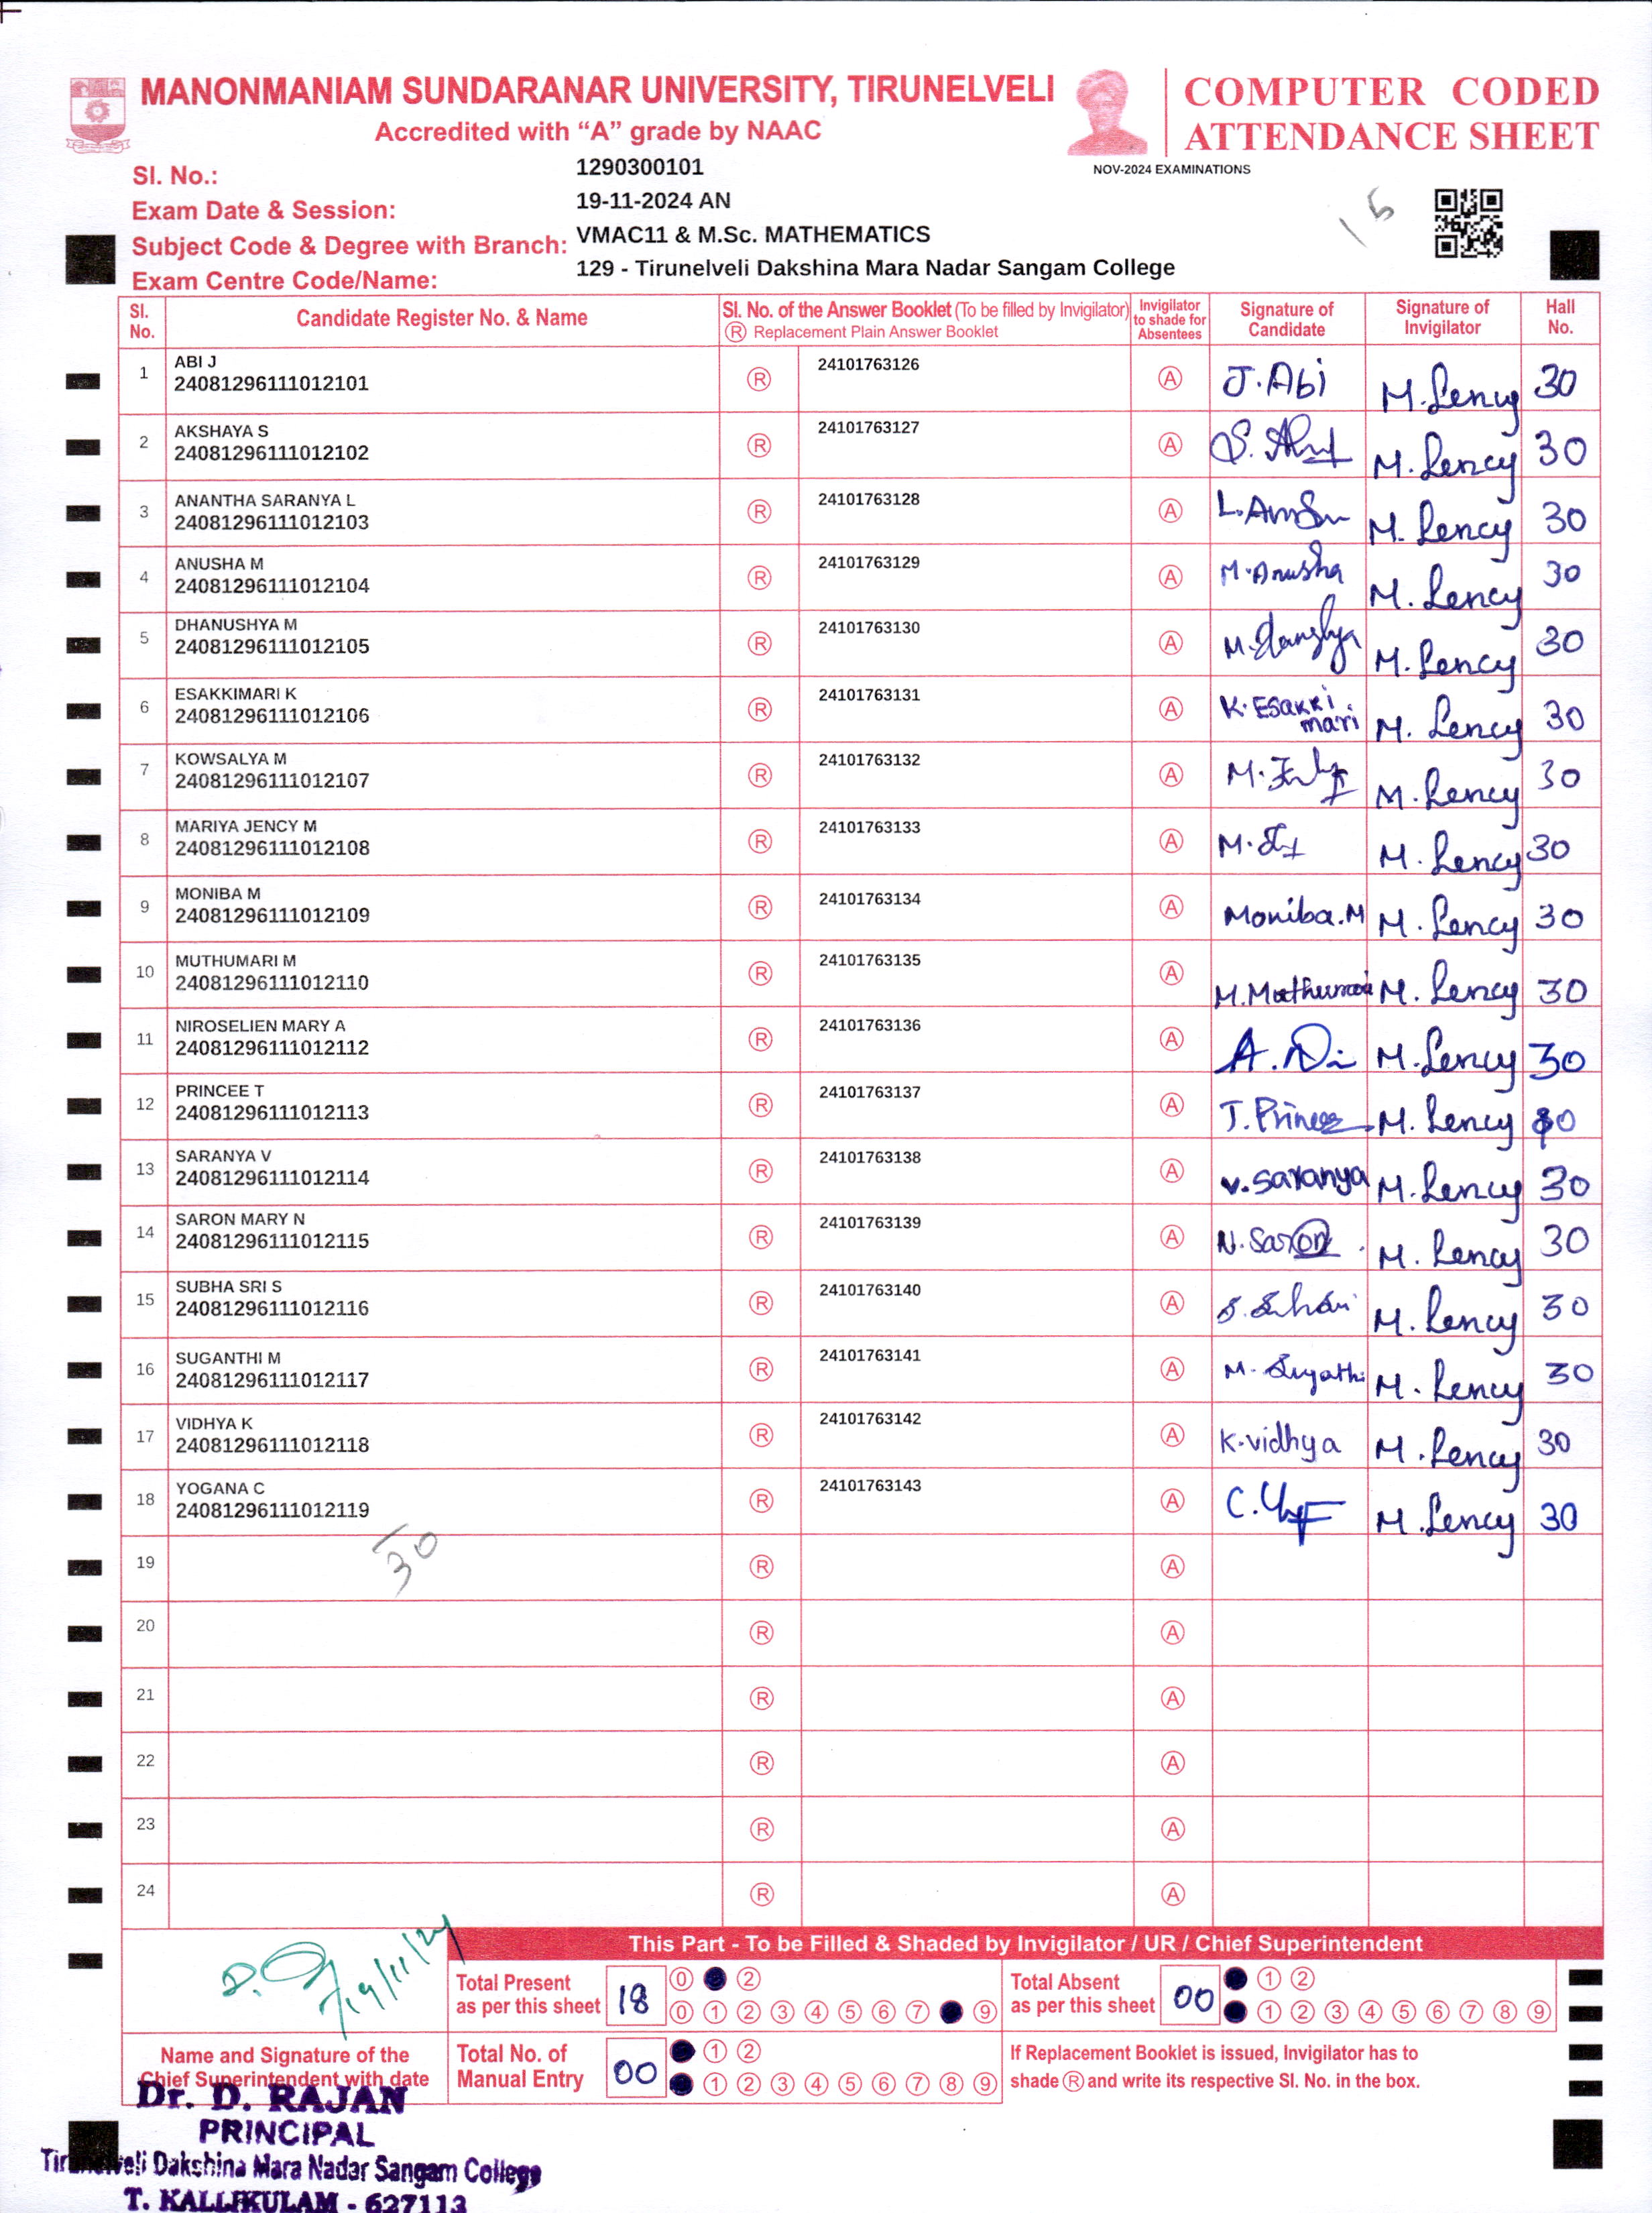 MANONMANIAM SUNDARANAR UNIVERSITY, TIRUNELVELI
Accredited with “A” grade by NAAC
COMPUTER CODED
ATTENDANCE SHEET
NOV-2024 EXAMINATIONS
Sl. No.: 1290300101
Exam Date & Session: 19-11-2024 AN
Subject Code & Degree with Branch: VMAC11 & M.Sc. MATHEMATICS
Exam Centre Code/Name: 129 - Tirunelveli Dakshina Mara Nadar Sangam College
15
Sl. No. Candidate Register No. & Name Sl. No. of the Answer Booklet (To be filled by Invigilator) Ⓡ Replacement Plain Answer Booklet Invigilator to shade for Absentees Signature of Candidate Signature of Invigilator Hall No.
1 ABI J 24081296111012101 Ⓡ 24101763126 Ⓐ J.Abi M.Lency 30
2 AKSHAYA S 24081296111012102 Ⓡ 24101763127 Ⓐ M.Lency 30
3 ANANTHA SARANYA L 24081296111012103 Ⓡ 24101763128 Ⓐ M.Lency 30
4 ANUSHA M 24081296111012104 Ⓡ 24101763129 Ⓐ M.Anusha M.Lency 30
5 DHANUSHYA M 24081296111012105 Ⓡ 24101763130 Ⓐ M.Lency 30
6 ESAKKIMARI K 24081296111012106 Ⓡ 24101763131 Ⓐ K.Esakki mari M.Lency 30
7 KOWSALYA M 24081296111012107 Ⓡ 24101763132 Ⓐ M.Lency 30
8 MARIYA JENCY M 24081296111012108 Ⓡ 24101763133 Ⓐ M.Lency 30
9 MONIBA M 24081296111012109 Ⓡ 24101763134 Ⓐ Moniba.M M.Lency 30
10 MUTHUMARI M 24081296111012110 Ⓡ 24101763135 Ⓐ M.Lency 30
11 NIROSELIEN MARY A 24081296111012112 Ⓡ 24101763136 Ⓐ M.Lency 30
12 PRINCEE T 24081296111012113 Ⓡ 24101763137 Ⓐ M.Lency 30
13 SARANYA V 24081296111012114 Ⓡ 24101763138 Ⓐ V.Saranya M.Lency 30
14 SARON MARY N 24081296111012115 Ⓡ 24101763139 Ⓐ N.Saron M.Lency 30
15 SUBHA SRI S 24081296111012116 Ⓡ 24101763140 Ⓐ M.Lency 30
16 SUGANTHI M 24081296111012117 Ⓡ 24101763141 Ⓐ M.Lency 30
17 VIDHYA K 24081296111012118 Ⓡ 24101763142 Ⓐ K.vidhya M.Lency 30
18 YOGANA C 24081296111012119 Ⓡ 24101763143 Ⓐ M.Lency 30
19 30 Ⓡ Ⓐ
20 Ⓡ Ⓐ
21 Ⓡ Ⓐ
22 Ⓡ Ⓐ
23 Ⓡ Ⓐ
24 Ⓡ Ⓐ
This Part - To be Filled & Shaded by Invigilator / UR / Chief Superintendent
19/11/24
Total Present as per this sheet 18
⓪ ②
⓪ ① ② ③ ④ ⑤ ⑥ ⑦ ⑨
Total Absent as per this sheet 00
① ②
① ② ③ ④ ⑤ ⑥ ⑦ ⑧ ⑨
Name and Signature of the
Chief Superintendent with date
Total No. of Manual Entry 00
① ②
① ② ③ ④ ⑤ ⑥ ⑦ ⑧ ⑨
If Replacement Booklet is issued, Invigilator has to
shade Ⓡ and write its respective Sl. No. in the box.
Dr. D. RAJAN
PRINCIPAL
Tirunelveli Dakshina Mara Nadar Sangam College
T. KALLIKULAM - 627113